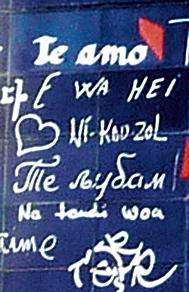 Te amo
E WA HEI
Ni-Kou-Zol
Те љубам
Na tondi woa
time